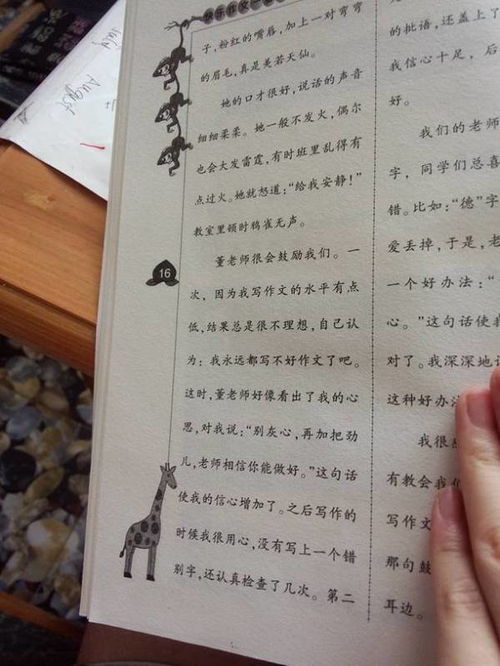 子,粉红的嘴唇,加上一对弯弯
的眉毛,真是美若天仙。
她的口才很好,说话的声音
细细柔柔。她一般不发火,偶尔
也会大发雷霆,有时班里乱得有
点过火。她就怒道:“给我安静!”
教室里顿时鸦雀无声。
董老师很会鼓励我们。一
次,因为我写作文的水平有点
低,结果总是很不理想,自己认
为:我永远都写不好作文了吧。
这时,董老师好像看出了我的心
思,对我说:“别灰心,再加把劲
儿,老师相信你能做好。”这句话
使我的信心增加了。之后写作的
时候我很用心,没有写上一个错
别字,还认真检查了几次。第二
16
的批语,还盖上了
我信心十足,后
好。
我们的老师
字,同学们总喜
错。比如:“德”字
爱丢掉,于是,老
一个好办法:“
心。”这句话使我
对了。我深深地
这种好办法
我很
有教会我们
写作文
那句鼓
耳边。
August